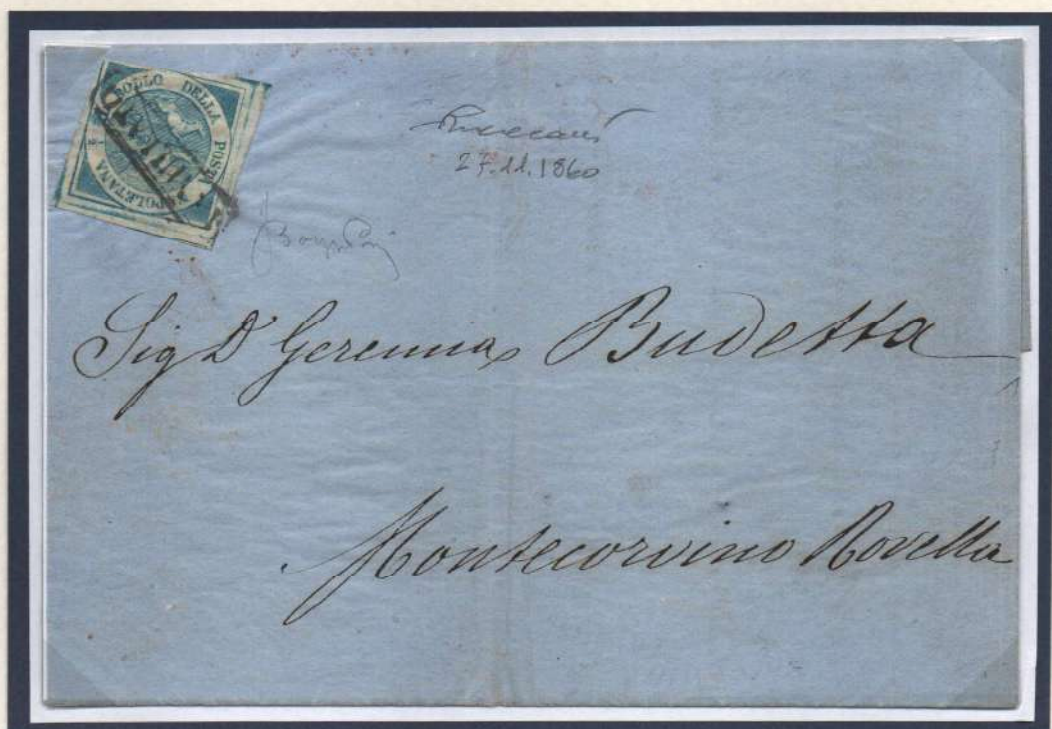 BOLLO DELLA POSTA NAPOLETANA
27.11.1860
Sig D Geremia Budetta
Montecorvino Rovella